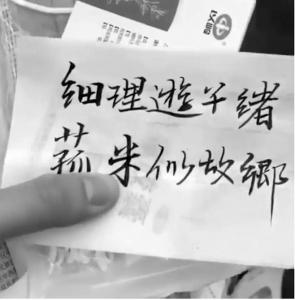 细理遊子绪
菰米似故鄉